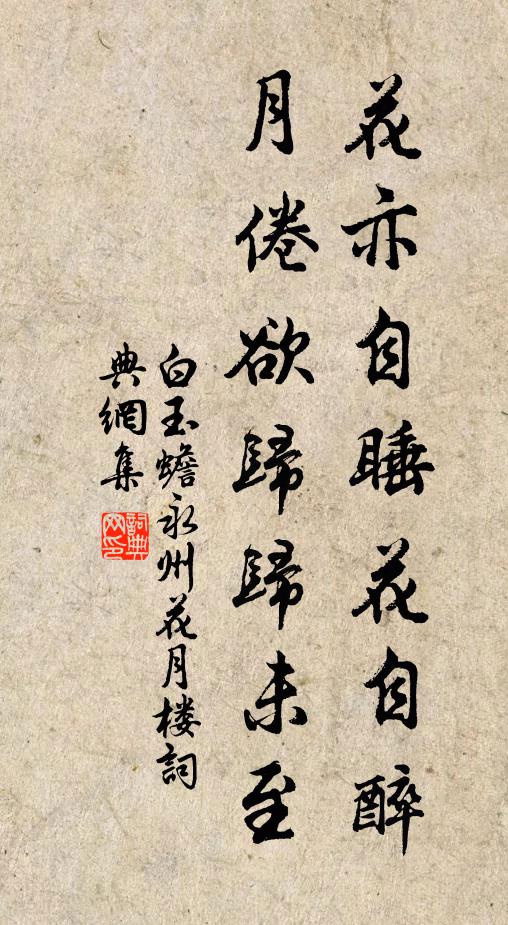 花亦自睡花自醉
月倦欲歸歸未至
白玉蟾永州花月楼詞
典網集
詞典网印